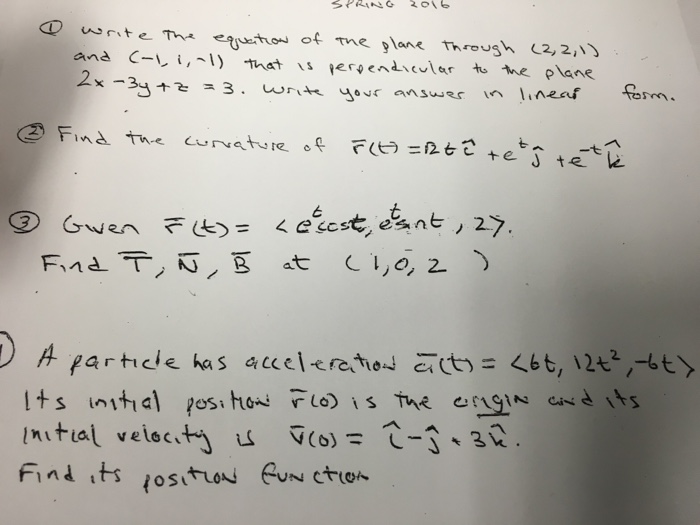 SPRING 2016
① Write the equation of the plane through (2,2,1)
and (-1,1,-1) that is perpendicular to the plane
2x-3y+z=3. Write your answer in linear form.
② Find the curvature of r̄(t)=√2tî+e^tĵ+e^-tk̂
③ Given r̄(t)= <e^tcost, e^tsint, 2>.
Find T̄, N̄, B̄ at (1,0,2)
) A particle has acceleration ā(t)= <6t, 12t², -6t>
Its initial position r̄(0) is the origin and its
initial velocity is v̄(0)= î-ĵ+3k̂.
Find its position function